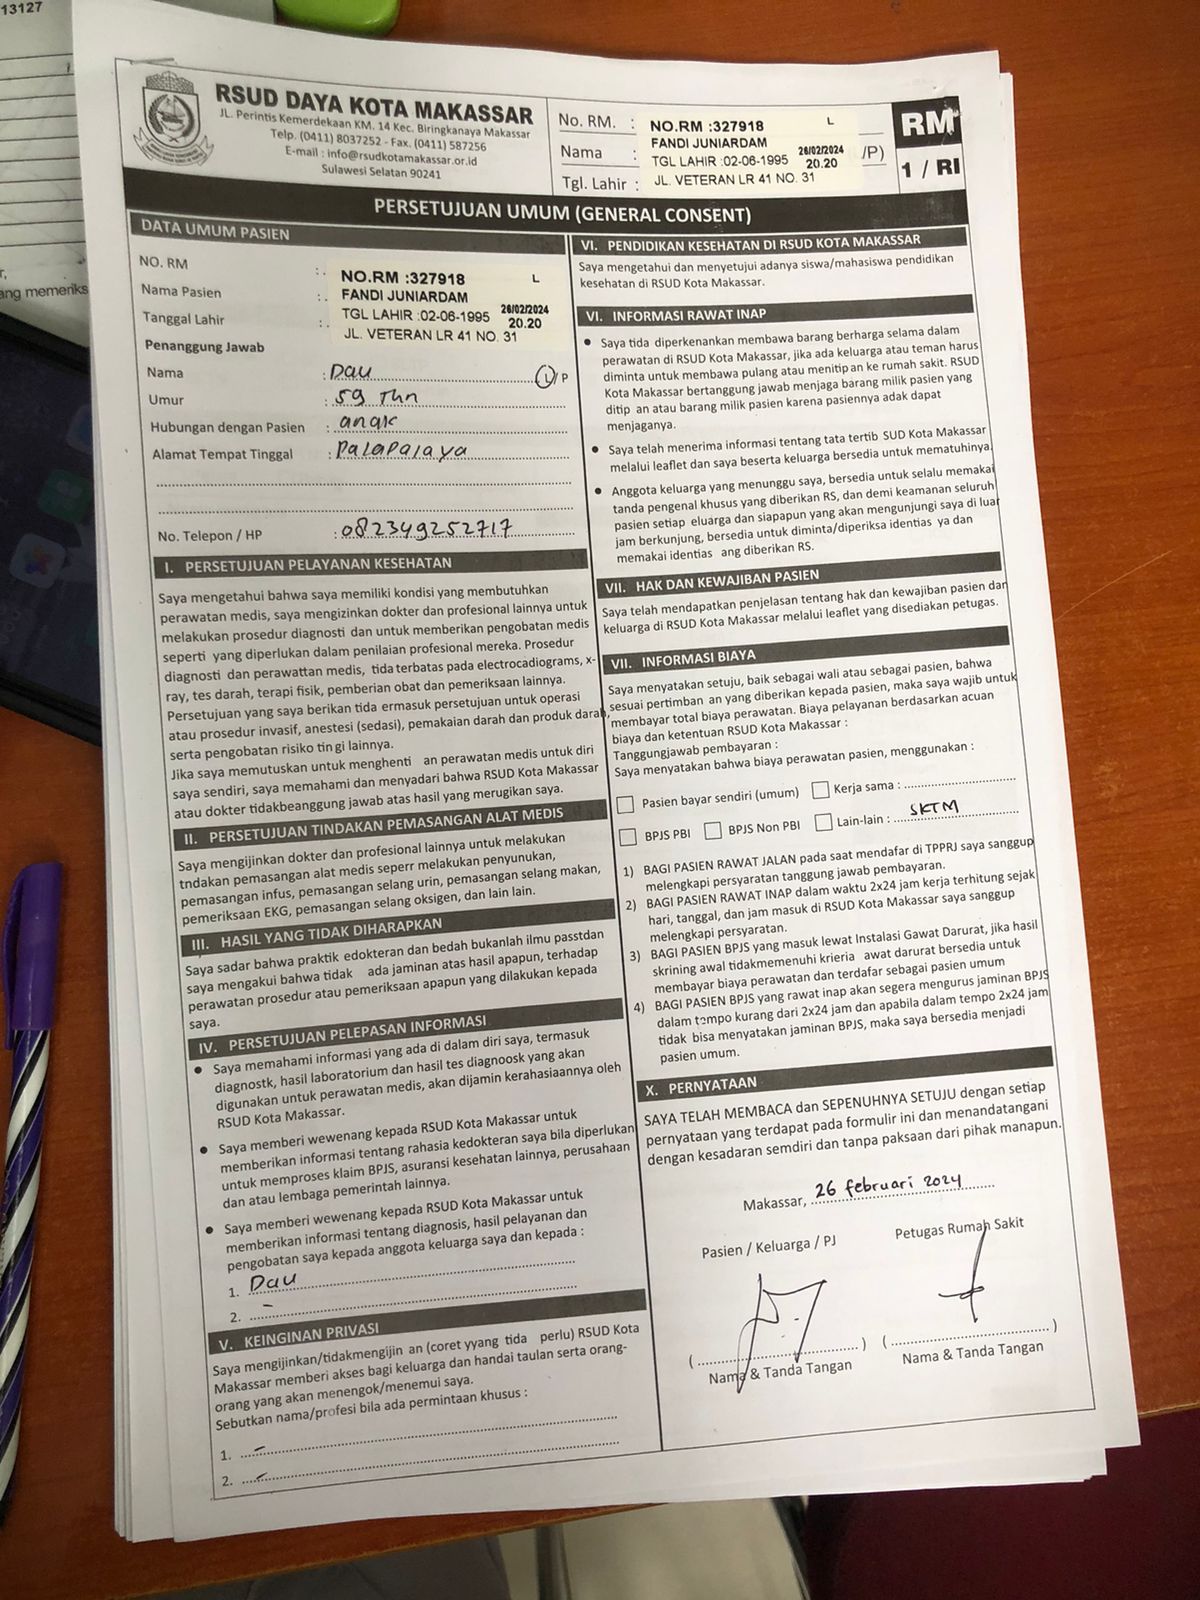 13127
RSUD DAYA KOTA MAKASSAR
JL. Perintis Kemerdekaan KM. 14 Kec. Biringkanaya Makassar
Telp. (0411) 8037252 - Fax. (0411) 587256
E-mail : info@rsudkotamakassar.or.id
Sulawesi Selatan 90241
No. RM. :
Nama :
Tgl. Lahir :
NO.RM :327918 L
FANDI JUNIARDAM
TGL LAHIR :02-06-1995 26/02/2024 20.20
JL. VETERAN LR 41 NO. 31
/P)
RM
1 / RI
PERSETUJUAN UMUM (GENERAL CONSENT)
DATA UMUM PASIEN
NO. RM :
Nama Pasien :
Tanggal Lahir :
NO.RM :327918 L
FANDI JUNIARDAM
TGL LAHIR :02-06-1995 26/02/2024 20.20
JL. VETERAN LR 41 NO. 31
Penanggung Jawab
Nama : Dau L/ P
Umur : 59 Thn
Hubungan dengan Pasien : anak
Alamat Tempat Tinggal : Palapalaya
No. Telepon / HP : 082349252717
I. PERSETUJUAN PELAYANAN KESEHATAN
Saya mengetahui bahwa saya memiliki kondisi yang membutuhkan
perawatan medis, saya mengizinkan dokter dan profesional lainnya untuk
melakukan prosedur diagnosti dan untuk memberikan pengobatan medis
seperti yang diperlukan dalam penilaian profesional mereka. Prosedur
diagnosti dan perawattan medis, tida terbatas pada electrocadiograms, x-
ray, tes darah, terapi fisik, pemberian obat dan pemeriksaan lainnya.
Persetujuan yang saya berikan tida ermasuk persetujuan untuk operasi
atau prosedur invasif, anestesi (sedasi), pemakaian darah dan produk darah,
serta pengobatan risiko tin gi lainnya.
Jika saya memutuskan untuk menghenti an perawatan medis untuk diri
saya sendiri, saya memahami dan menyadari bahwa RSUD Kota Makassar
atau dokter tidakbeanggung jawab atas hasil yang merugikan saya.
II. PERSETUJUAN TINDAKAN PEMASANGAN ALAT MEDIS
Saya mengijinkan dokter dan profesional lainnya untuk melakukan
tndakan pemasangan alat medis seperr melakukan penyunukan,
pemasangan infus, pemasangan selang urin, pemasangan selang makan,
pemeriksaan EKG, pemasangan selang oksigen, dan lain lain.
III. HASIL YANG TIDAK DIHARAPKAN
Saya sadar bahwa praktik edokteran dan bedah bukanlah ilmu passtdan
saya mengakui bahwa tidak ada jaminan atas hasil apapun, terhadap
perawatan prosedur atau pemeriksaan apapun yang dilakukan kepada
saya.
IV. PERSETUJUAN PELEPASAN INFORMASI
• Saya memahami informasi yang ada di dalam diri saya, termasuk
diagnostk, hasil laboratorium dan hasil tes diagnoosk yang akan
digunakan untuk perawatan medis, akan dijamin kerahasiaannya oleh
RSUD Kota Makassar.
• Saya memberi wewenang kepada RSUD Kota Makassar untuk
memberikan informasi tentang rahasia kedokteran saya bila diperlukan
untuk memproses klaim BPJS, asuransi kesehatan lainnya, perusahaan
dan atau lembaga pemerintah lainnya.
• Saya memberi wewenang kepada RSUD Kota Makassar untuk
memberikan informasi tentang diagnosis, hasil pelayanan dan
pengobatan saya kepada anggota keluarga saya dan kepada :
1. Dau
2. -
V. KEINGINAN PRIVASI
Saya mengijinkan/tidakmengijin an (coret yyang tida perlu) RSUD Kota
Makassar memberi akses bagi keluarga dan handai taulan serta orang-
orang yang akan menengok/menemui saya.
Sebutkan nama/profesi bila ada permintaan khusus :
1. -
2. -
VI. PENDIDIKAN KESEHATAN DI RSUD KOTA MAKASSAR
Saya mengetahui dan menyetujui adanya siswa/mahasiswa pendidikan
kesehatan di RSUD Kota Makassar.
VI. INFORMASI RAWAT INAP
• Saya tida diperkenankan membawa barang berharga selama dalam
perawatan di RSUD Kota Makassar, jika ada keluarga atau teman harus
diminta untuk membawa pulang atau menitip an ke rumah sakit. RSUD
Kota Makassar bertanggung jawab menjaga barang milik pasien yang
ditip an atau barang milik pasien karena pasiennya adak dapat
menjaganya.
• Saya telah menerima informasi tentang tata tertib SUD Kota Makassar
melalui leaflet dan saya beserta keluarga bersedia untuk mematuhinya.
• Anggota keluarga yang menunggu saya, bersedia untuk selalu memakai
tanda pengenal khusus yang diberikan RS, dan demi keamanan seluruh
pasien setiap eluarga dan siapapun yang akan mengunjungi saya di luar
jam berkunjung, bersedia untuk diminta/diperiksa identias ya dan
memakai identias ang diberikan RS.
VII. HAK DAN KEWAJIBAN PASIEN
Saya telah mendapatkan penjelasan tentang hak dan kewajiban pasien dan
keluarga di RSUD Kota Makassar melalui leaflet yang disediakan petugas.
VII. INFORMASI BIAYA
Saya menyatakan setuju, baik sebagai wali atau sebagai pasien, bahwa
sesuai pertimban an yang diberikan kepada pasien, maka saya wajib untuk
membayar total biaya perawatan. Biaya pelayanan berdasarkan acuan
biaya dan ketentuan RSUD Kota Makassar :
Tanggungjawab pembayaran :
Saya menyatakan bahwa biaya perawatan pasien, menggunakan :
Pasien bayar sendiri (umum) Kerja sama :
BPJS PBI BPJS Non PBI Lain-lain : SKTM
1) BAGI PASIEN RAWAT JALAN pada saat mendafar di TPPRJ saya sanggup
melengkapi persyaratan tanggung jawab pembayaran.
2) BAGI PASIEN RAWAT INAP dalam waktu 2x24 jam kerja terhitung sejak
hari, tanggal, dan jam masuk di RSUD Kota Makassar saya sanggup
melengkapi persyaratan.
3) BAGI PASIEN BPJS yang masuk lewat Instalasi Gawat Darurat, jika hasil
skrining awal tidakmemenuhi krieria awat darurat bersedia untuk
membayar biaya perawatan dan terdafar sebagai pasien umum
4) BAGI PASIEN BPJS yang rawat inap akan segera mengurus jaminan BPJS
dalam tempo kurang dari 2x24 jam dan apabila dalam tempo 2x24 jam
tidak bisa menyatakan jaminan BPJS, maka saya bersedia menjadi
pasien umum.
X. PERNYATAAN
SAYA TELAH MEMBACA dan SEPENUHNYA SETUJU dengan setiap
pernyataan yang terdapat pada formulir ini dan menandatangani
dengan kesadaran semdiri dan tanpa paksaan dari pihak manapun.
Makassar, 26 februari 2024
Pasien / Keluarga / PJ Petugas Rumah Sakit
( ) ( )
Nama & Tanda Tangan Nama & Tanda Tangan